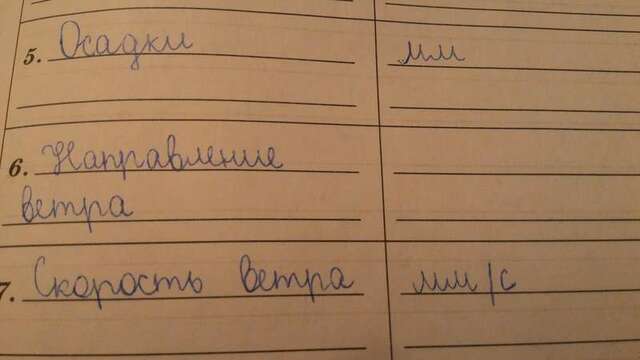 5. Осадки мм
6. Направление
ветра
7. Скорость ветра мм/с